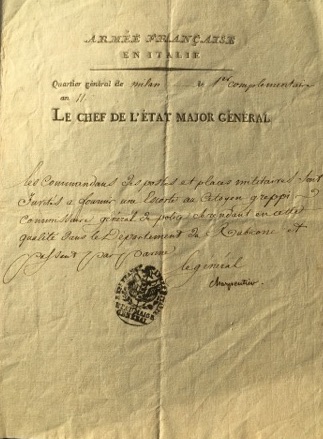 ARMÉE FRANÇAISE
EN ITALIE
Quartier général de milan le 1er complementaire
an 11.
LE CHEF DE L'ÉTAT MAJOR GÉNÉRAL
les Commandans des postes et places militaires sont
Invités a fournir une Escorte au Citoyen greppi
Commissaire général de police se rendant en cette
qualité dans le Département du Rubicone et
passant par parme
le général
Charpentier
ETAT MAJOR
GENERAL